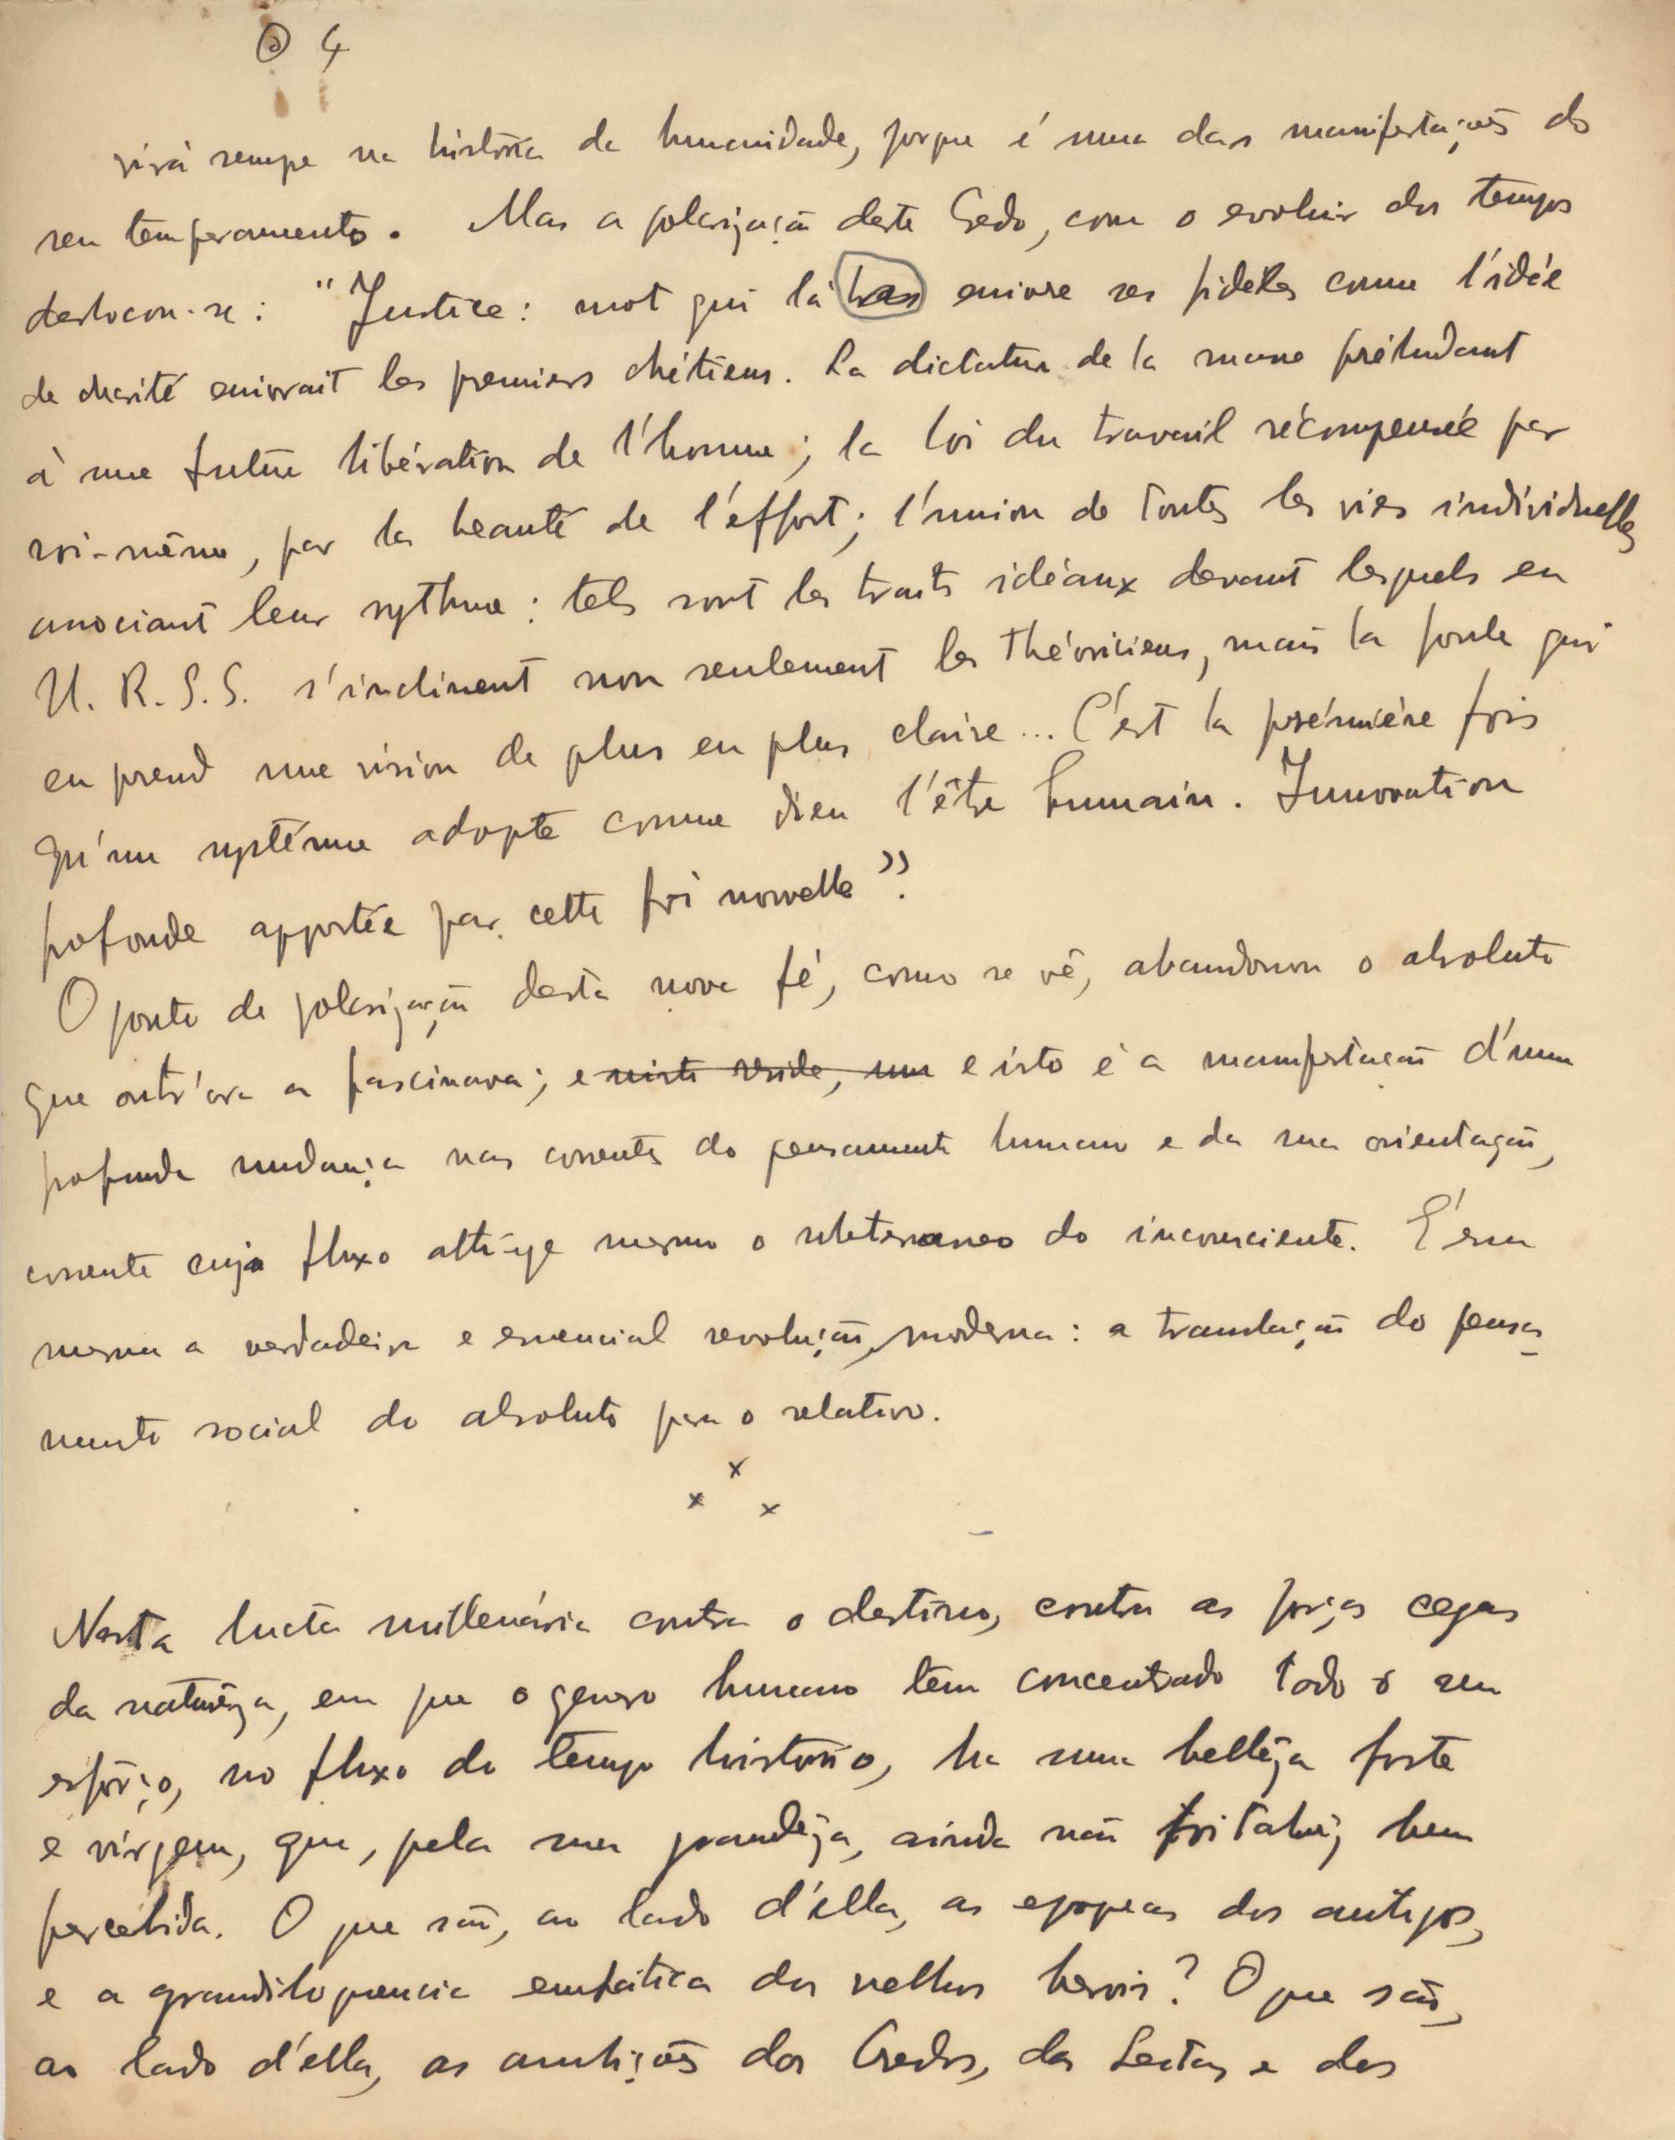 ④ 4
virá sempre na história da humanidade, porque é uma das manifestações do
seu temperamento. Mas a polarização deste Credo, com o evoluir dos tempos
deslocou-se: "Justice: mot qui là bas enivre ses fidèles comme l'idée
de charité enivrait les premiers chrétiens. La dictature de la masse préludant
à une future libération de l'homme; la loi du travail récompensée par
soi-même, par la beauté de l'effort; l'union de toutes les vies individuelles
associant leur rythme: tels sont les traits idéaux devant lesquels en
U. R. S. S. s'inclinent non seulement les théoriciens, mais la foule qui
en prend une vision de plus en plus claire... C'est la première fois
qu'un système adopte comme dieu l'être humain. Innovation
profonde apportée par cette foi nouvelle".
O ponto de polarização desta nova fé, como se vê, abandonou o absoluto
que outr'ora a fascinava; e nisto reside, uma e isto é a manifestação d'uma
profunda mudança nas correntes do pensamento humano e da sua orientação,
corrente cujo fluxo attinge mesmo o subterraneo do inconsciente. É essa
mesma a verdadeira e essencial revolução moderna: a translação do pensa-
mento social do absoluto para o relativo.
x
x x
Nesta lucta millenária contra o destino, contra as forças cegas
da naturêza, em que o genero humano tem concentrado todo o seu
esfôrço, no fluxo do tempo histórico, ha uma bellêza forte
e vírgem, que, pela sua grandêza, ainda não foi talvêz bem
percebida. O que são, ao lado d'ella, as epopeas dos antigos,
e a grandiloquencia emfática dos velhos herois? O que são,
ao lado d'ella, as ambições dos Credos, das Seitas e dos